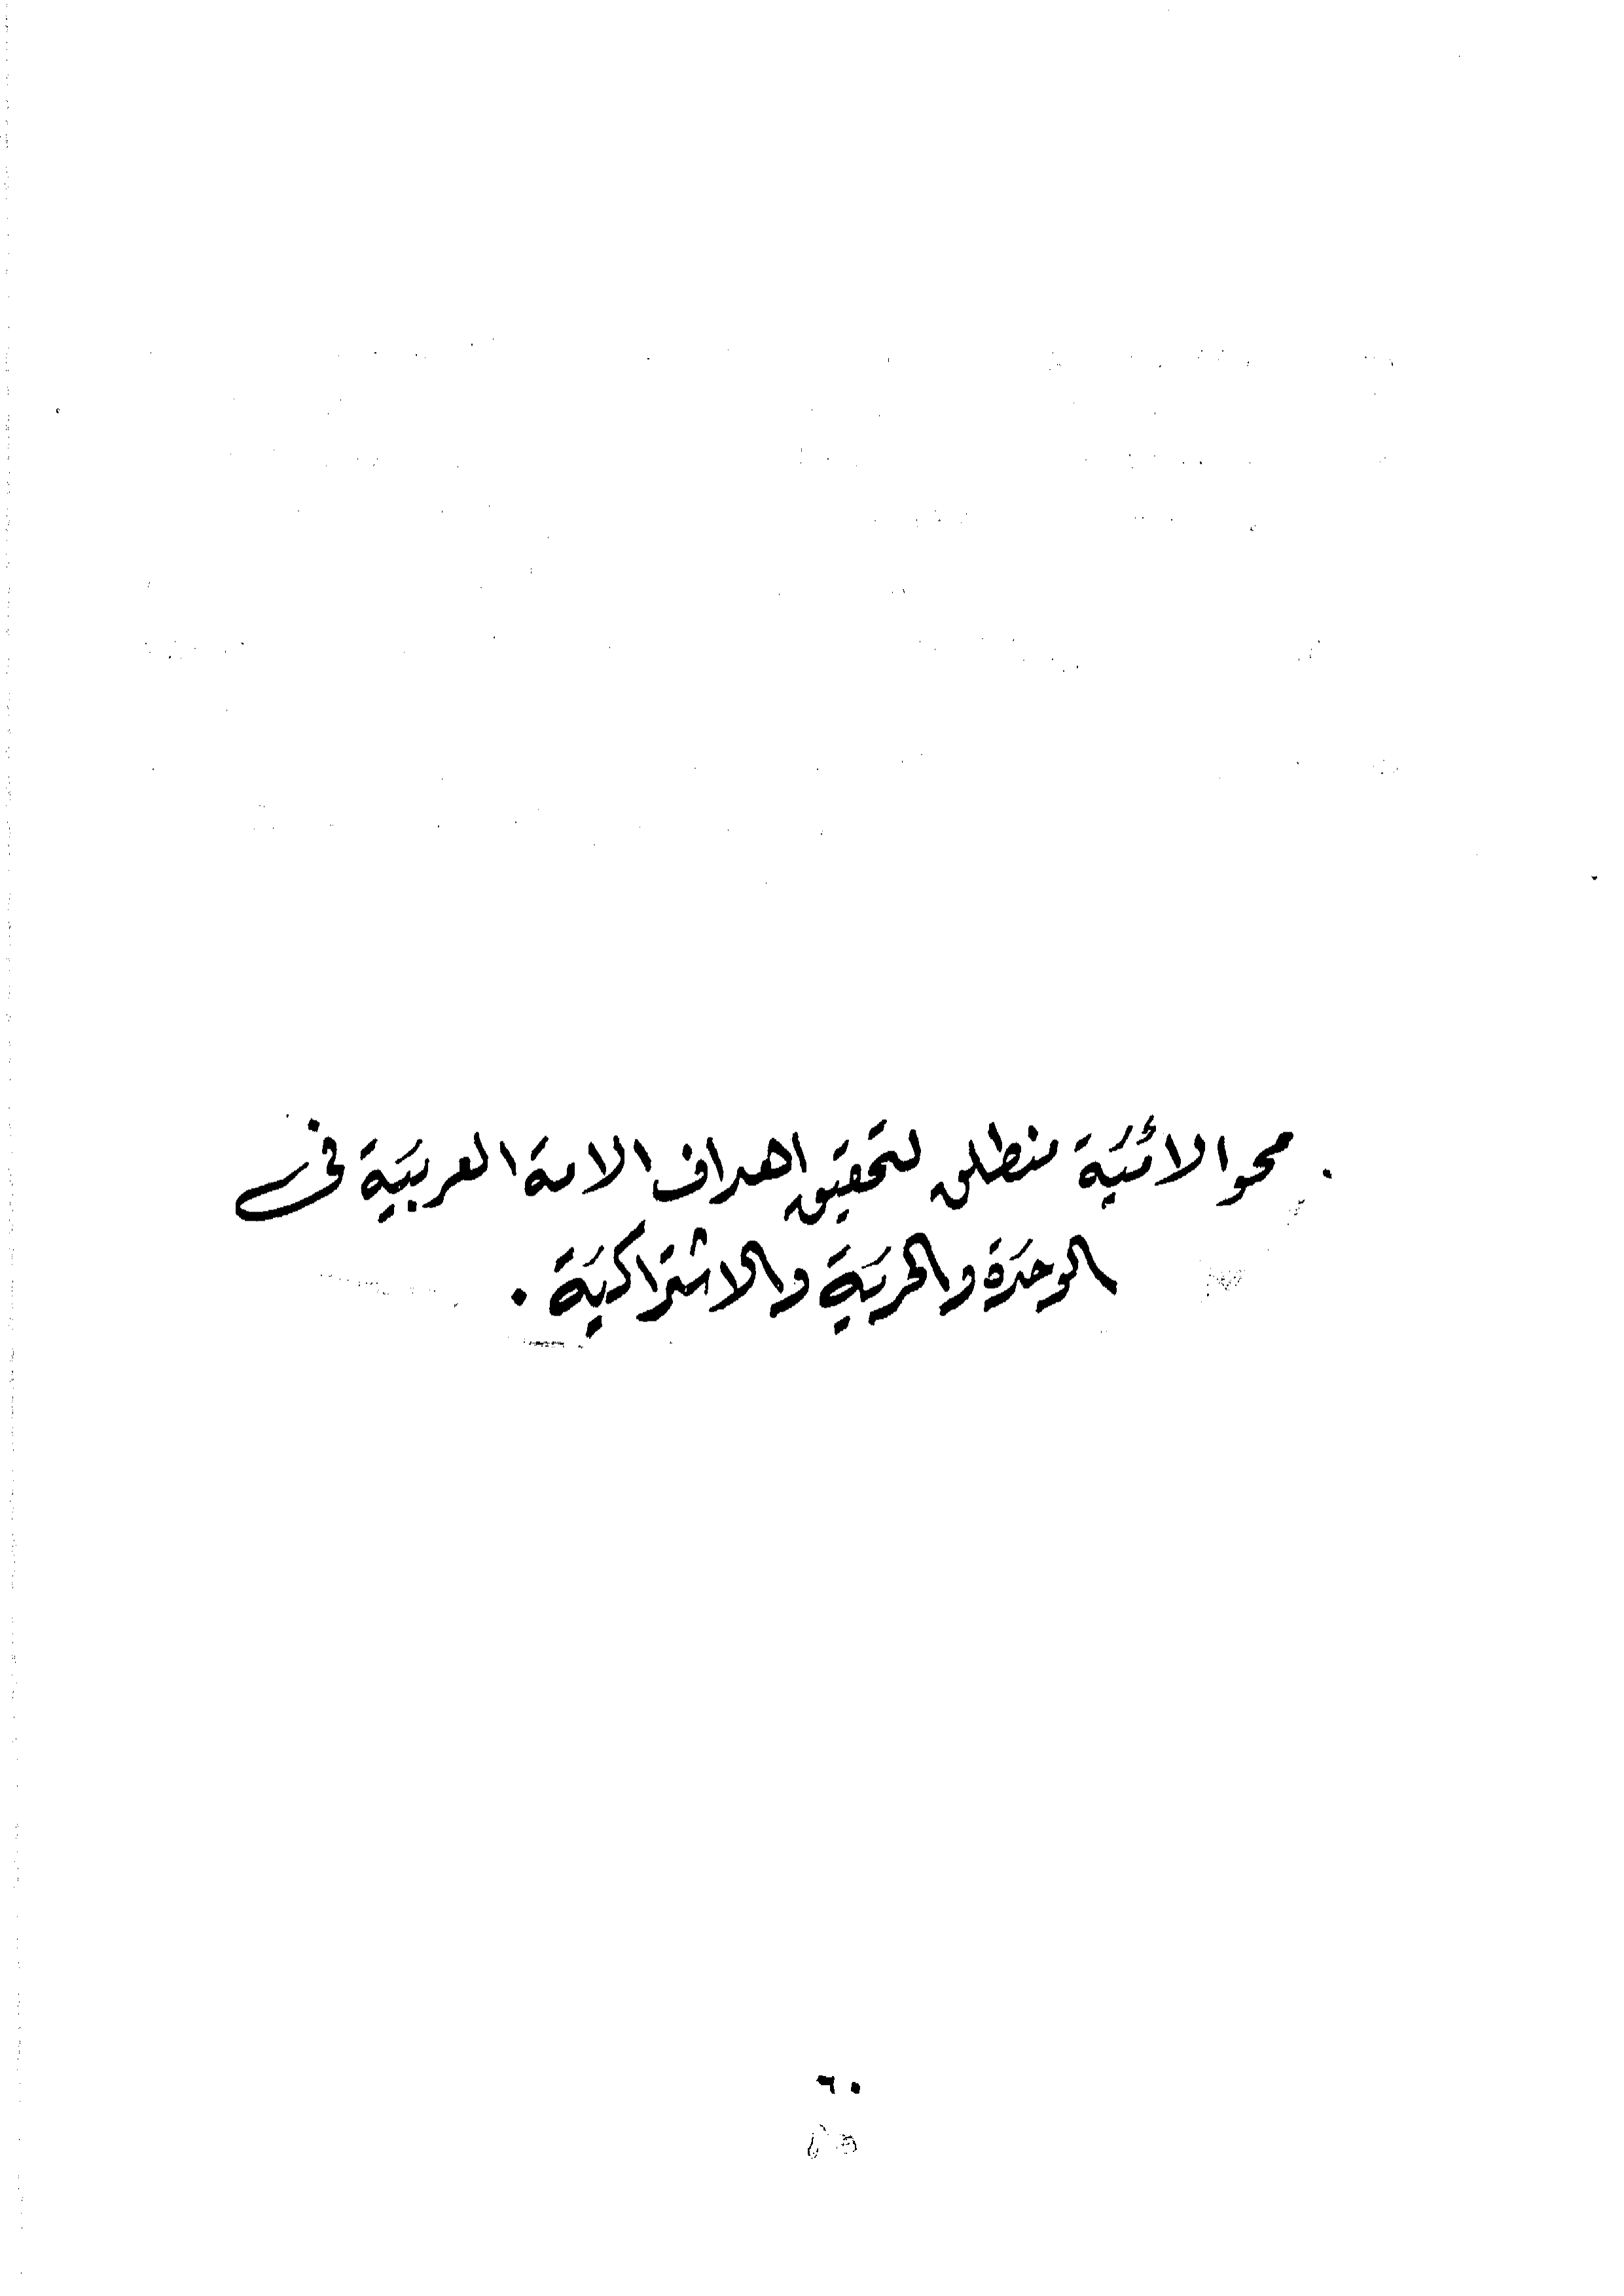 . محو الائمية منطلق لتحقيق اهداف الامة العربية في
الوحدة والحرية والاشتراكية .
٦٠